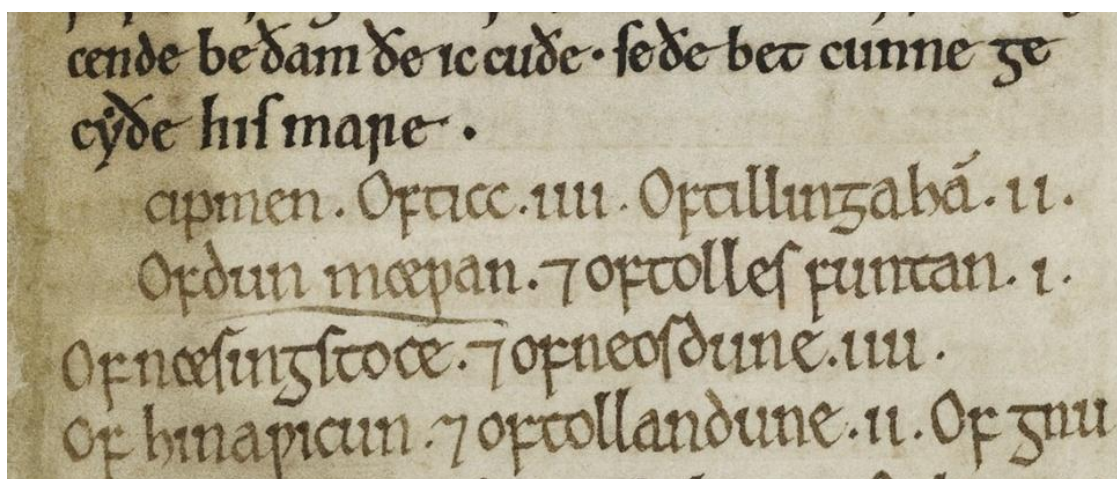 cende be ðam ðe ic cuðe · se ðe bet cunne ge
cẏðe his mare ·
scipmen . Of ticc . iiii . Of tillingahā . ii .
Of dunmæwan . ⁊ of tolles funtan . i .
Of næsingstoce . ⁊ of neosdune . iiii .
Of hinawicun . ⁊ of tollandune . ii . Of gnu